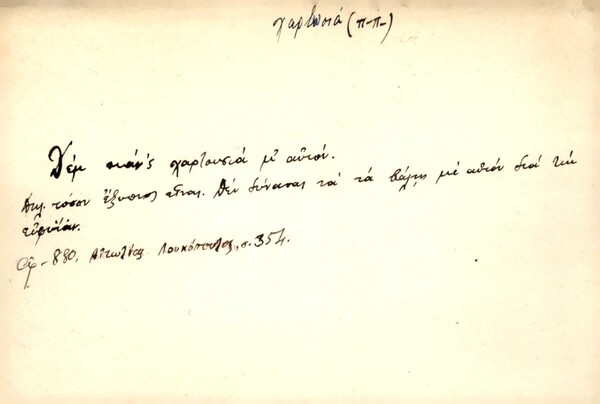 χαρτωσιά (π-π-)
Δέμ πιάν'ς χαρτουσιά μ' αὐτόν.
Δηλ. τόσον ἔξυπνος εἶναι. Δέν δύνασαι νά τά βάλῃς μέ αὐτόν διά τήν
εὐφυΐαν.
ἀρ. 880, Αἰτωλίας Λουκόπουλος, σ. 354.